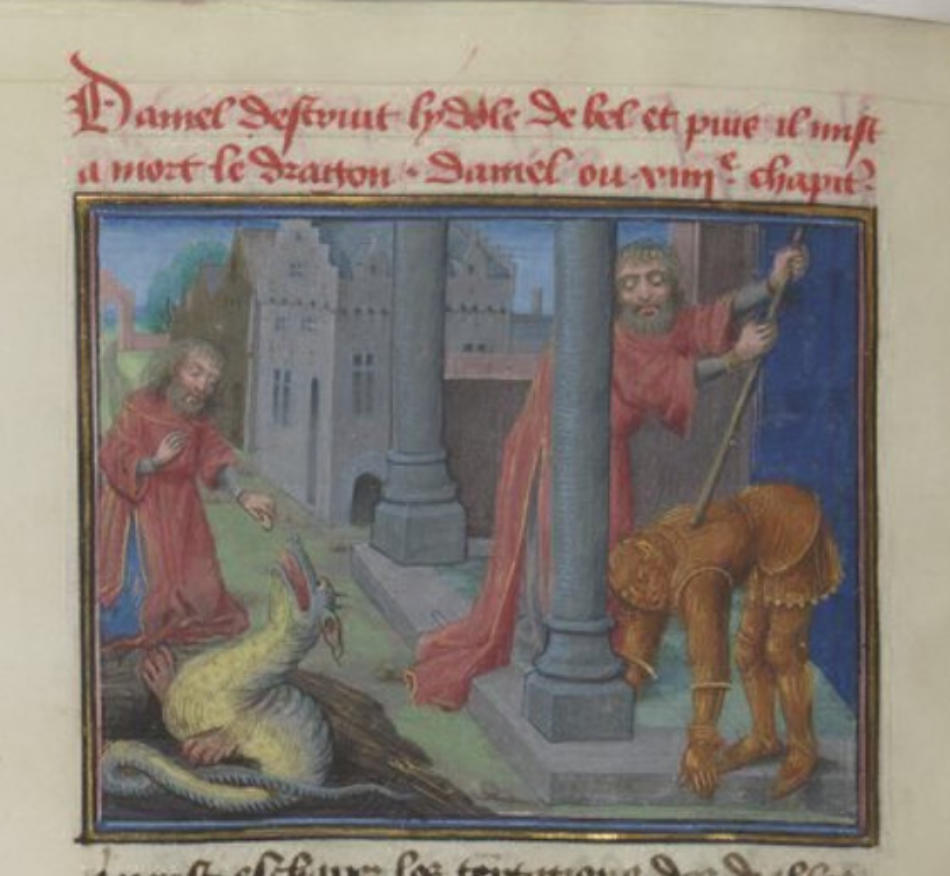 Daniel destruit lydole de bel et puis il mist
a mort le dragon . Daniel ou . xiiii e . chapit
les temptations